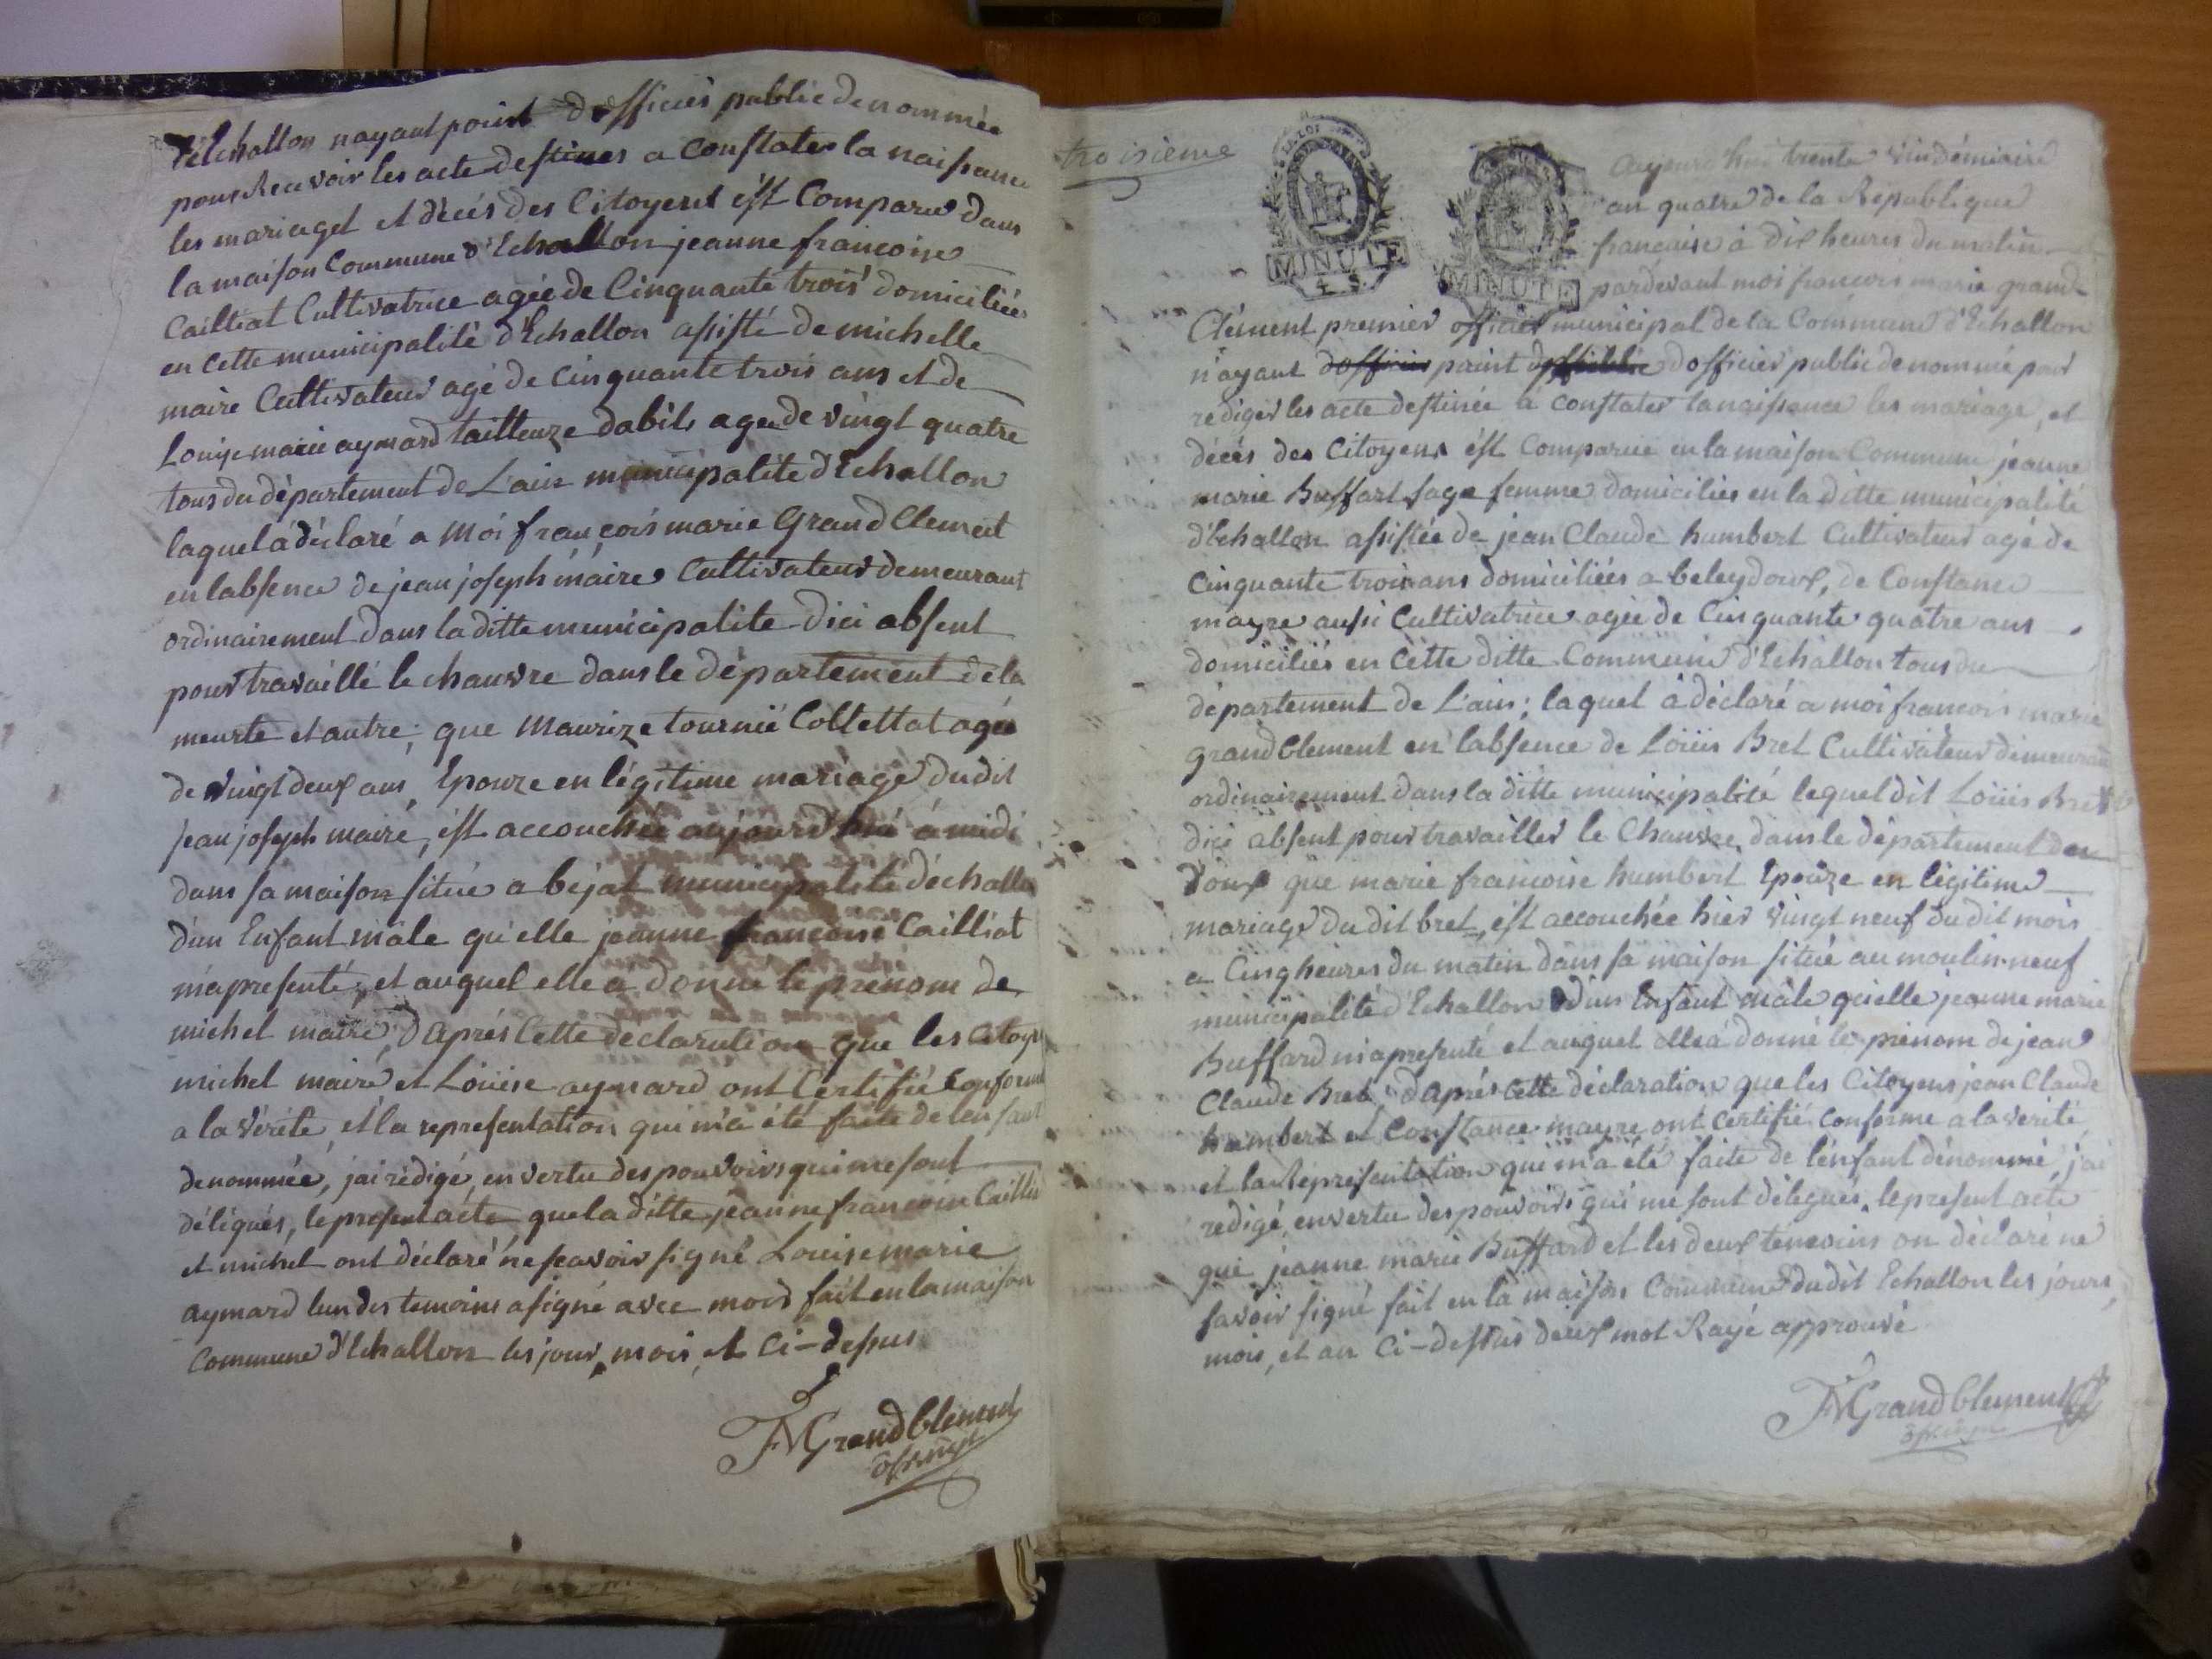 d'Echallon nayant point dofficier public denommée
pour Recevoir les acte destinés a Constater la naissance
les mariaget et décés des Citoyent ést Comparue dans
la maison Commune d'Echallon jeanne francoise
Cailliat Cultivatrice agée de Cinquante trois domiciliée
en cette municipalité d'Echallon assisté de michelle
maire Cultivateur agé de cinquante trois ans et de
Louise marie aymard tailleuze dabits agée de vingt quatre
tous du département de L'ain municipalité d'Echallon
laquel à déclaré a moi françois marie Grand Clement
en labsence de jean joseph maire Cultivateur demeurant
ordinairement dans la ditte municipalité dici absent
pour travaillé le chanvre dans le département de la
meurte et autre; que Maurize tournié Collettat agée
de vingt deux ans, Epouze en légitime mariage dudit
jean joseph maire, ést accouchée aujourd'hui a midi
dans sa maison située a béjat municipalité déchallon
d'un Enfant mâle qu'elle jeanne francoise Cailliat
m'a presenté, et auquel elle a donné le prénom de
michel maire, d'après Cette déclaration que les Citoyens
michel maire et Louise aymard ont Certifié Conforme
a la vérité, et la representation qui m'a été faite de lenfant
denommée, jai rédigé en vertu des pouvoirs qui me sont
délégués, le present acte que la ditte jeanne francoise Cailliat
et michel ont déclaré ne scavoir signé Louise marie
aymard lun des temoins a signé avec moi fait en la maison
Commune d'Echallon les jour, mois, et ci-dessus
FMGrandClement
off. mpl
troisième
LA LOI
MINUTE
4. S.
MINUTE
Aujourd'hui trente vindémiaire
an quatre de la République
francaise à dix heures du matin
pardevant moi francois marie grand
Clément premier officier municipal de la Commune d'Echallon
n'ayant dofficier point dofficier public denommé pour
rédiger les acte destinée a constater la naissance les mariage, et
décés des Citoyens ést Comparue en la maison Commune jeanne
marie Buffart sage femme domiciliée en la ditte municipalité
d'Echallon assistée de jean Claude humbert Cultivateur agé de
Cinquante trois ans domiciliées a beleydoux, de Constance
mayre aussi Cultivatrice agée de Cinquante quatre ans
domiciliés en Cette ditte Commune d'Echallon tous du
département de L'ain; laquel à déclaré a moi francois marie
grandClement en labsence de Loüis Bret Cultivateur demeurant
ordinairement dans la ditte municipalité lequel dit Loüis Bret
dici absent pour travailler le Chanvre dans le département du
doux que marie francoise humbert Epouze en légitime
mariage du dit bret, ést accouchée hier vingt neuf du dit mois
a Cinq heures du matin dans sa maison située au moulin neuf
municipalité d'Echallon d'un Enfant mâle qu'elle jeanne marie
Buffard m'a presenté et auquel elle à donné le prénom de jean
Claude Bret d'après cette déclaration que les Citoyens jean Claude
humbert et Constance mayre ont certifié conforme a la vérité
et la Représentation qui m'a été faite de l'enfant dénommé, j'ai
redigé, en vertu des pouvoirs qui me sont délegués, le present acte
que jeanne marie Buffard et les deux temoins on déclaré ne
savoir signé fait en la maison Commune dudit Echallon les jours,
mois, et an Ci-dessus deux mot Rayé approuvé
FMGrandClement